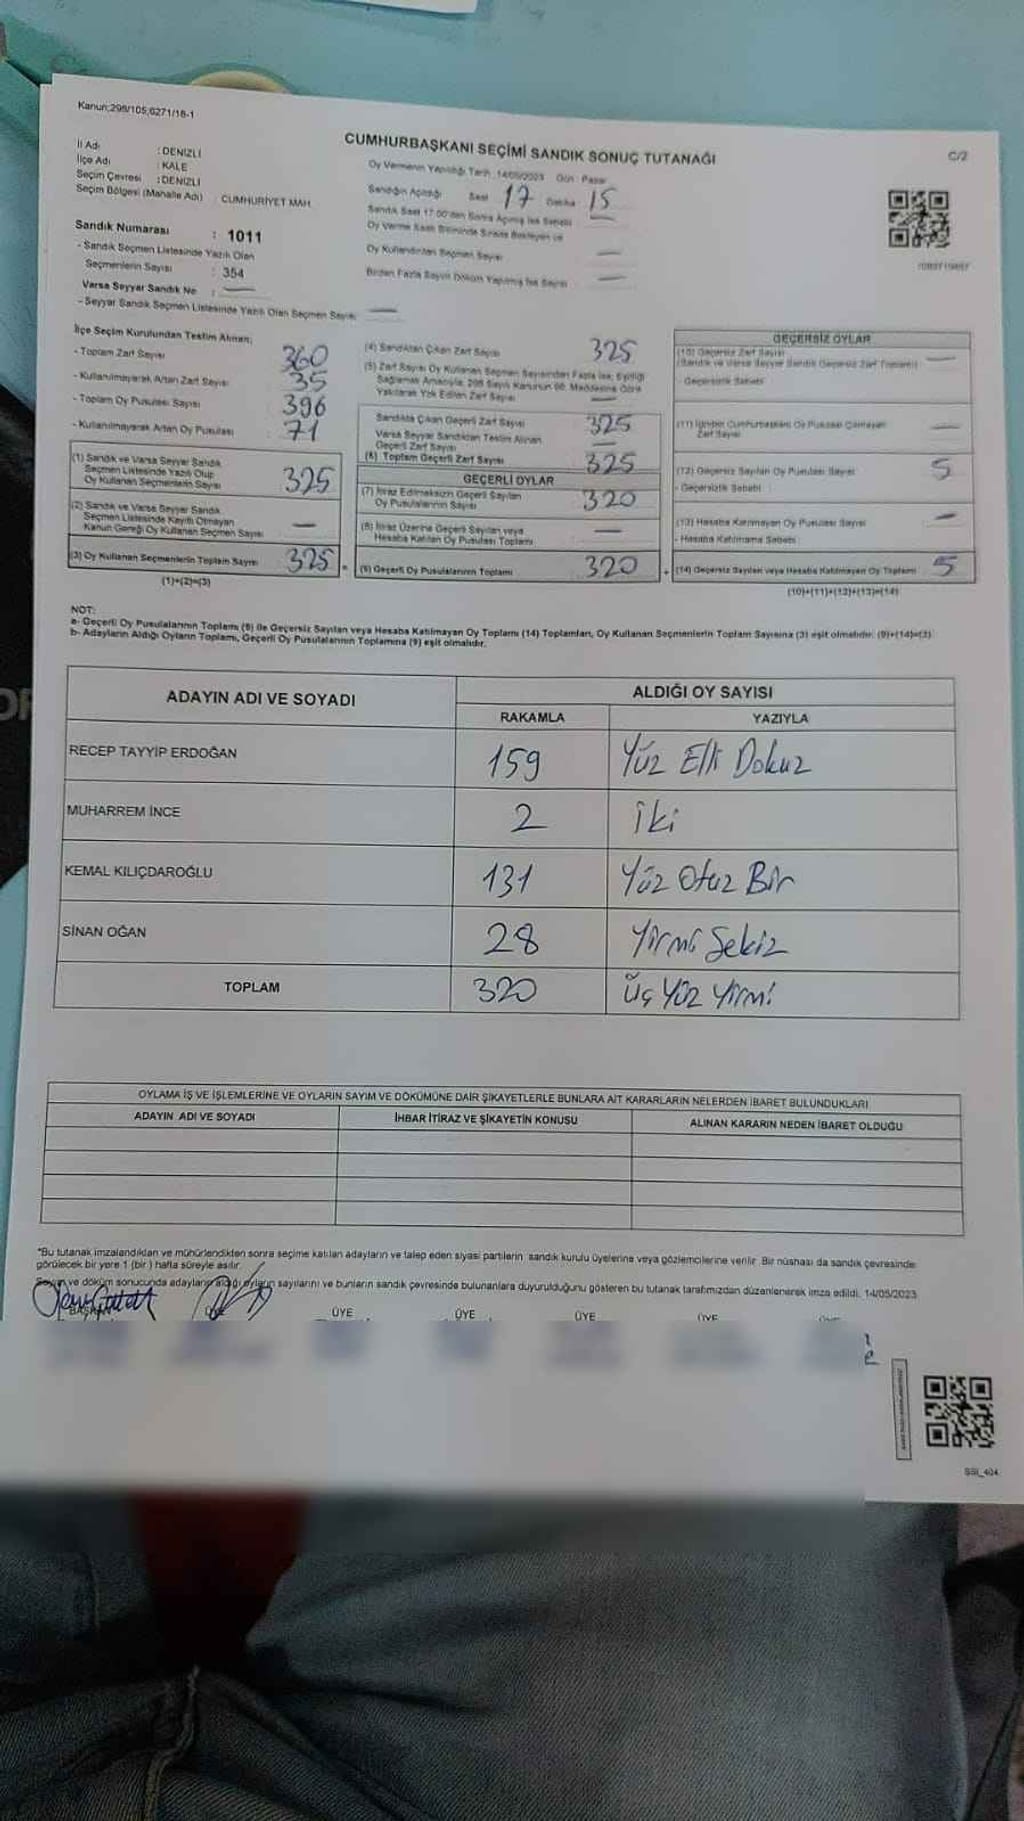 Kanun;298/105;6271/18-1
CUMHURBAŞKANI SEÇİMİ SANDIK SONUÇ TUTANAĞI
C/2
İl Adı : DENİZLİ
İlçe Adı : KALE
Seçim Çevresi : DENİZLİ
Seçim Bölgesi (Mahalle Adı) : CUMHURİYET MAH.
Oy Vermenin Yapıldığı Tarih : 14/05/2023 Gün : Pazar
Sandığın Açıldığı Saat 17 Dakika 15
Sandık Saat 17.00'den Sonra Açılmış İse Sebebi
Oy Verme Saati Bitiminde Sırada Bekleyen ve
Oy Kullandırılan Seçmen Sayısı
Birden Fazla Sayım Döküm Yapılmış İse Sayısı
Sandık Numarası : 1011
- Sandık Seçmen Listesinde Yazılı Olan
Seçmenlerin Sayısı : 354
Varsa Seyyar Sandık No :
- Seyyar Sandık Seçmen Listesinde Yazılı Olan Seçmen Sayısı
İlçe Seçim Kurulundan Teslim Alınan;
- Toplam Zarf Sayısı 360
- Kullanılmayarak Artan Zarf Sayısı 35
- Toplam Oy Pusulası Sayısı 396
- Kullanılmayarak Artan Oy Pusulası 71
(1) Sandık ve Varsa Seyyar Sandık
Seçmen Listesinde Yazılı Olup
Oy Kullanan Seçmenlerin Sayısı 325
(2) Sandık ve Varsa Seyyar Sandık
Seçmen Listesinde Kayıtlı Olmayan
Kanun Gereği Oy Kullanan Seçmen Sayısı —
(3) Oy Kullanan Seçmenlerin Toplam Sayısı 325
(1)+(2)=(3)
(4) Sandıktan Çıkan Zarf Sayısı 325
(5) Zarf Sayısı Oy Kullanan Seçmen Sayısından Fazla İse; Eşitliği
Sağlamak Amacıyla, 298 Sayılı Kanunun 98. Maddesine Göre
Yakılarak Yok Edilen Zarf Sayısı —
Sandıkta Çıkan Geçerli Zarf Sayısı 325
Varsa Seyyar Sandıktan Teslim Alınan
Geçerli Zarf Sayısı —
(6) Toplam Geçerli Zarf Sayısı 325
GEÇERLİ OYLAR
(7) İtiraz Edilmeksizin Geçerli Sayılan
Oy Pusulalarının Sayısı 320
(8) İtiraz Üzerine Geçerli Sayılan veya
Hesaba Katılan Oy Pusulası Toplamı —
(9) Geçerli Oy Pusulalarının Toplamı 320
GEÇERSİZ OYLAR
(10) Geçersiz Zarf Sayısı —
(Sandık ve Varsa Seyyar Sandık Geçersiz Zarf Toplamı)
- Geçersizlik Sebebi
(12) Geçersiz Sayılan Oy Pusulası Sayısı 5
- Geçersizlik Sebebi :
(13) Hesaba Katılmayan Oy Pusulası Sayısı —
- Hesaba Katılmama Sebebi :
(14) Geçersiz Sayılan veya Hesaba Katılmayan Oy Toplamı 5
(10)+(11)+(12)+(13)=(14)
NOT:
a- Geçerli Oy Pusulalarının Toplamı (9) ile Geçersiz Sayılan veya Hesaba Katılmayan Oy Toplamı (14) Toplamları, Oy Kullanan Seçmenlerin Toplam Sayısına (3) eşit olmalıdır. (9)+(14)=(3)
b- Adayların Aldığı Oyların Toplamı, Geçerli Oy Pusulalarının Toplamına (9) eşit olmalıdır.
ADAYIN ADI VE SOYADI ALDIĞI OY SAYISI
RAKAMLA YAZIYLA
RECEP TAYYİP ERDOĞAN 159 Yüz Elli Dokuz
MUHARREM İNCE 2 İki
KEMAL KILIÇDAROĞLU 131 Yüz Otuz Bir
SİNAN OĞAN 28 Yirmi Sekiz
TOPLAM 320 Üç Yüz Yirmi
OYLAMA İŞ VE İŞLEMLERİNE VE OYLARIN SAYIM VE DÖKÜMÜNE DAİR ŞİKAYETLERLE BUNLARA AİT KARARLARIN NELERDEN İBARET BULUNDUKLARI
ADAYIN ADI VE SOYADI İHBAR İTİRAZ VE ŞİKAYETİN KONUSU ALINAN KARARIN NEDEN İBARET OLDUĞU
*Bu tutanak imzalandıktan ve mühürlendikten sonra seçime katılan adayların ve talep eden siyasi partilerin sandık kurulu üyelerine veya gözlemcilerine verilir. Bir nüshası da sandık çevresinde
görülecek bir yere 1 (bir) hafta süreyle asılır.
Sayım ve döküm sonucunda adayların aldığı oyların sayılarını ve bunların sandık çevresinde bulunanlara duyurulduğunu gösteren bu tutanak tarafımızdan düzenlenerek imza edildi. 14/05/2023
BAŞKAN ÜYE ÜYE ÜYE ÜYE ÜYE
SSI_404